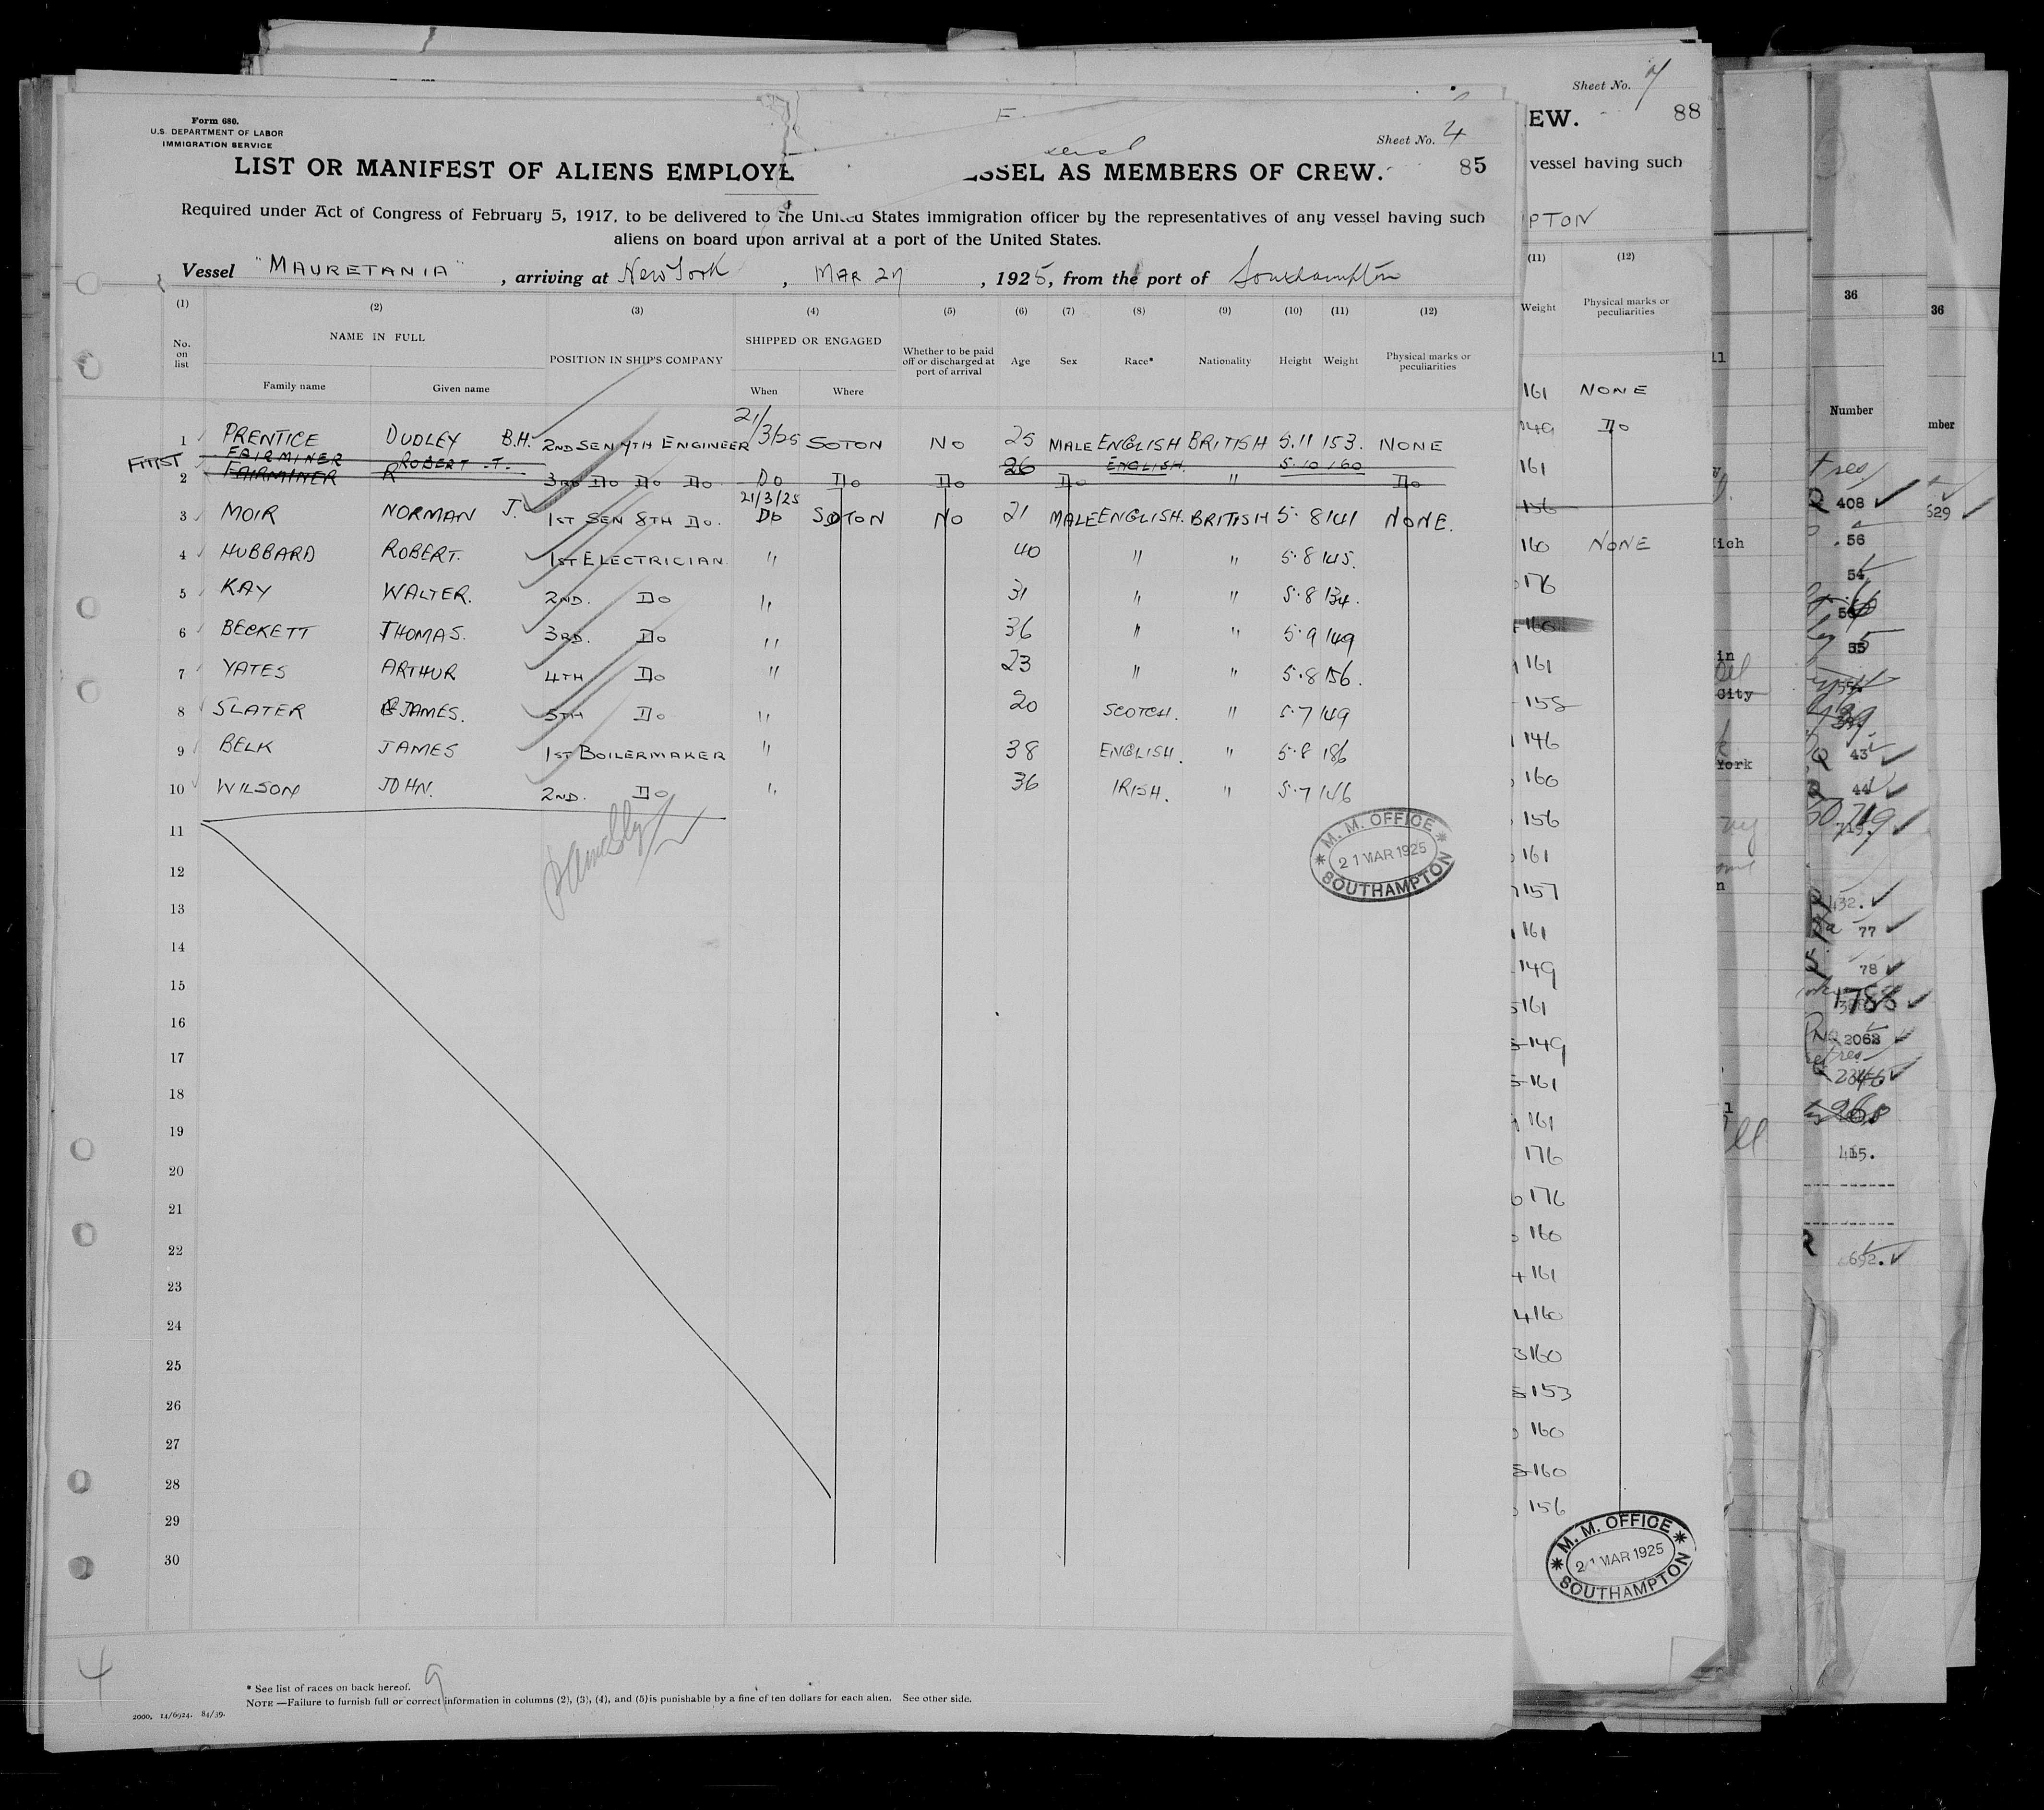 Form 680.
U.S. DEPARTMENT OF LABOR
IMMIGRATION SERVICE
Sheet No. 4
LIST OR MANIFEST OF ALIENS EMPLOYE SSEL AS MEMBERS OF CREW. 85
Required under Act of Congress of February 5, 1917, to be delivered to the United States immigration officer by the representatives of any vessel having such
aliens on board upon arrival at a port of the United States.
Vessel "MAURETANIA", arriving at New York, MAR 27, 1925, from the port of Southampton
(1) (2) (3) (4) (5) (6) (7) (8) (9) (10) (11) (12)
No. on list NAME IN FULL POSITION IN SHIP'S COMPANY SHIPPED OR ENGAGED Whether to be paid off or discharged at port of arrival Age Sex Race* Nationality Height Weight Physical marks or peculiarities
Family name Given name When Where
1 PRENTICE DUDLEY B.H. 2ND SEN 7TH ENGINEER 21/3/25 SOTON NO 25 MALE ENGLISH BRITISH 5.11 153. NONE
FAIRMINER ROBERT .T. 26 ENGLISH. 5.10 160
2 FAIRMINER R 3RD DO DO DO DO DO DO DO " DO
3 MOIR NORMAN J. 1ST SEN 8TH DO. 21/3/25 DO SOTON NO 21 MALE ENGLISH. BRITISH 5.8 141 NONE.
4 HUBBARD ROBERT. 1ST ELECTRICIAN. " 40 " " 5.8 145.
5 KAY WALTER. 2ND. DO " 31 " " 5.8 134.
6 BECKETT THOMAS. 3RD. DO " 36 " " 5.9 149
7 YATES ARTHUR 4TH DO " 23 " " 5.8 156.
8 SLATER JAMES. 5TH DO " 20 SCOTCH. " 5.7 149
9 BELK JAMES 1ST BOILERMAKER " 38 ENGLISH. " 5.8 186
10 WILSON JOHN. 2ND. DO " 36 IRISH. " 5.7 146
11
12
13
14
15
16
17
18
19
20
21
22
23
24
25
26
27
28
29
30
M. M. OFFICE
21 MAR 1925
SOUTHAMPTON
4
9
* See list of races on back hereof.
NOTE —Failure to furnish full or correct information in columns (2), (3), (4), and (5) is punishable by a fine of ten dollars for each alien. See other side.
2000. 14/6924. 84/39.
Sheet No. 7
EW. 88
vessel having such
PTON
(11) (12)
Weight Physical marks or peculiarities
161 NONE
149 DO
161
156
160 NONE
176
160
161
158
146
160
156
161
157
161
149
161
149
161
161
176
176
160
161
160
160
153
160
160
156
M. M. OFFICE
21 MAR 1925
SOUTHAMPTON
ich
in
City
York
36
Number
408
56
54
55
43
44
719
432.
77
78
1788
2063
415.
692.
36
mber
529